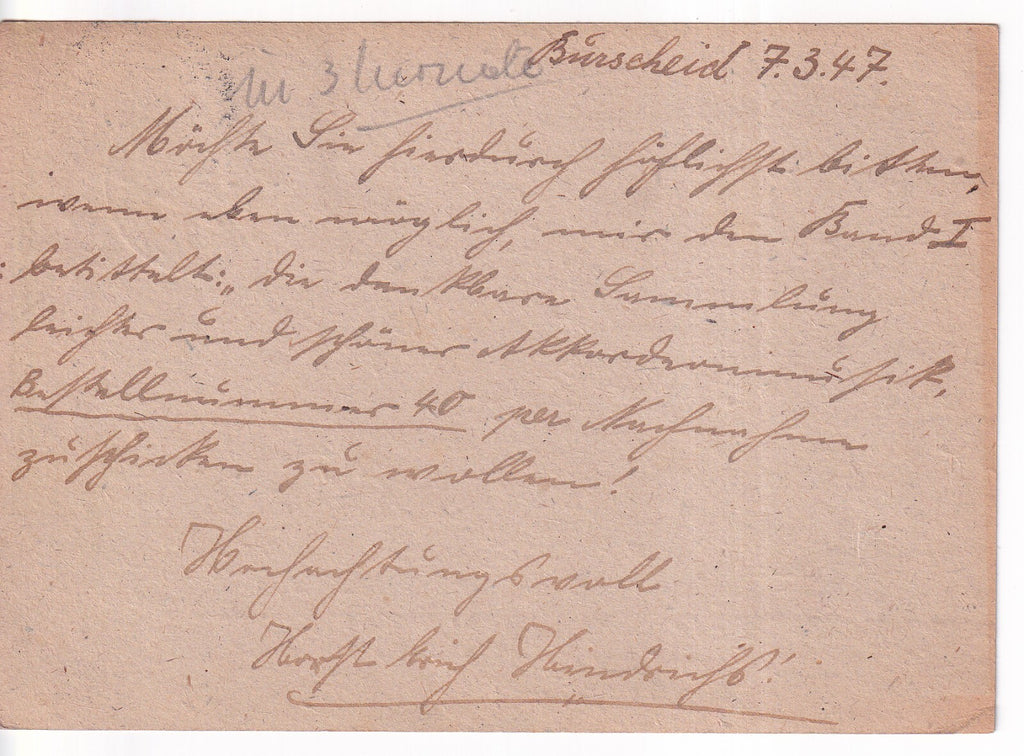 In 3 Monate
Burscheid 7.3.47.
Möchte Sie hierdurch höflichst bitten,
wenn eben möglich, mir den Band I
betittelt: „die dankbare Sammlung
leichter und schöner Akkordeonmusik,
Bestellnummer 40 per Nachnahme
zuschicken zu wollen!
Hochachtungsvoll
Horst Erich Hindrichs!